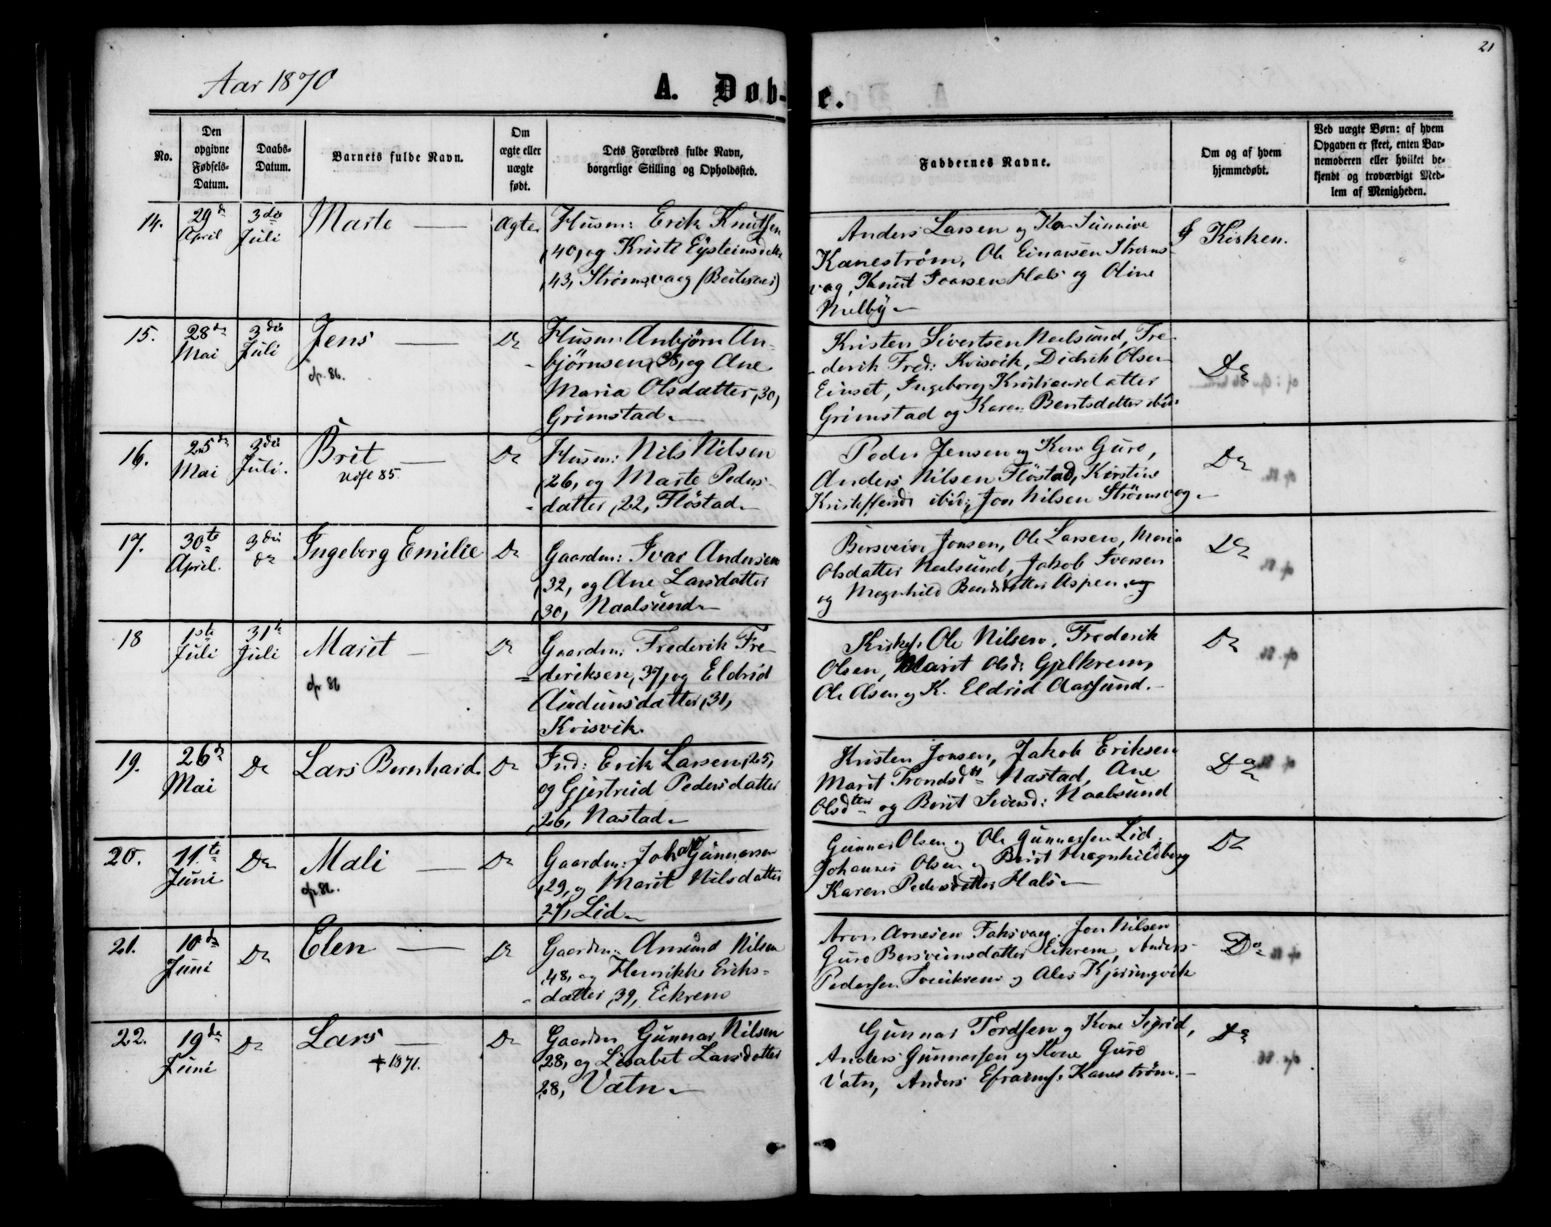 21
Aar 1870
A. Døb-
e.
No.
Den
opgivne
Fødsels-
Datum.
Daabs-
Datum.
Barnets fulde Navn.
Om
ægte eller
uægte
født.
Dets Forældres fulde Navn,
borgerlige Stilling og Opholdssted.
Faddernes Navne.
Om og af hvem
hjemmedøbt.
Ved uægte Børn: af hvem
Opgaven er skeet, enten Bar-
nemoderen eller hvilket be-
kjendt og troværdigt Med-
lem af Menigheden.
14.
29de
April
3die
Juli
Marte
Ægte
Husm: Erik Knutsen
40, og Kristi Eysteinsdatter
43, Strømsvaag
Anders Larsen og Kone Sunnive
Kanestrøm, Ole Einarsen Strøms-
vag, Knut Hals og Oline
Melby
I Kirken.
15.
28de
Mai
3die
Juli
Jens
op. 86.
Do
Husm: Anbjørn An-
bjørnsen, og Ane
Maria Olsdatter, 30,
Grimstad
Kristen Sivertsen Naalsund, Fre-
derik Fred: Kvisvik, Didrik Olsen
Einset, Ingeborg Kristiansdatter
Grimstad og Karen Bentsdatter ibid
Do
16.
25de
Mai
3die
Juli.
Brit
85.
Do
Husm: Nils Nilsen
26, og Marte Peders-
datter, 22, Fløstad
Peder Jensen og Kone Guro,
Anders Nilsen Fløstad, Kirstine
ibid, Jon Nilsen Strømsvag
Do
17.
30te
April.
3die
do
Ingeborg Emilie
Do
Gaardm: Ivar Andersen
32, og Ane Larsdatter
30, Naalsund
Jonsen, Ole Larsen, Maria
Olsdatter Naalsund, Jakob Iversen
og Magnhild Aspen
Do
18
1ste
Juli
31te
Juli
Marit
op. 86
Do
Gaardm: Frederik Fre-
deriksen, 37, og Eldrid
Audunsdatter, 31,
Kvisvik.
Kirkes. Ole Nilsen, Frederik
Olsen, Marit Olsd:
Ole Olsen og K. Eldrid Aarsund.
Do
19.
26de
Mai
Do
Lars Bernhard.
Do
Ind: Erik Larsen, 25,
og Gjertrud Pedersdatter
26, Nastad
Kristen Jonsen, Jakob Eriksen
Marit Trondsdtr Nastad, Ane
Olsdtter og Berit Iversd: Naalsund
Do
20.
11te
Juni
Do
Mali
op. 86.
Do
Gaardm: Johan Gunnarsen
29, og Marit Nilsdatter
27, Lid
Gunnar Olsen og Ole Gunnarsen Lid,
Johannes Olsen og Berit Magnhildberg
Karen Pedersdatter Hals
Do
21.
10de
Juni
Do
Elen
Do
Gaardm: Amund Nilsen
48, og Henrikke Eriks-
datter, 39, Eikrem
Aron Arnesen Foksvaag, Jon Nilsen
Guro Eikrem, Anders
Pedersen og Ales Kjøringvik
Do
22.
19de
Juni
Do
Lars
† 1871.
Do
Gaardm Gunnar Nilsen
28, og Lisabet Larsdatter
28, Vatn
Gunnar Tordsen og Kone Sigrid,
Anders Gunnarsen og Kone Guro
Vatn, Anders Efraims: Kanestrøm.
Do